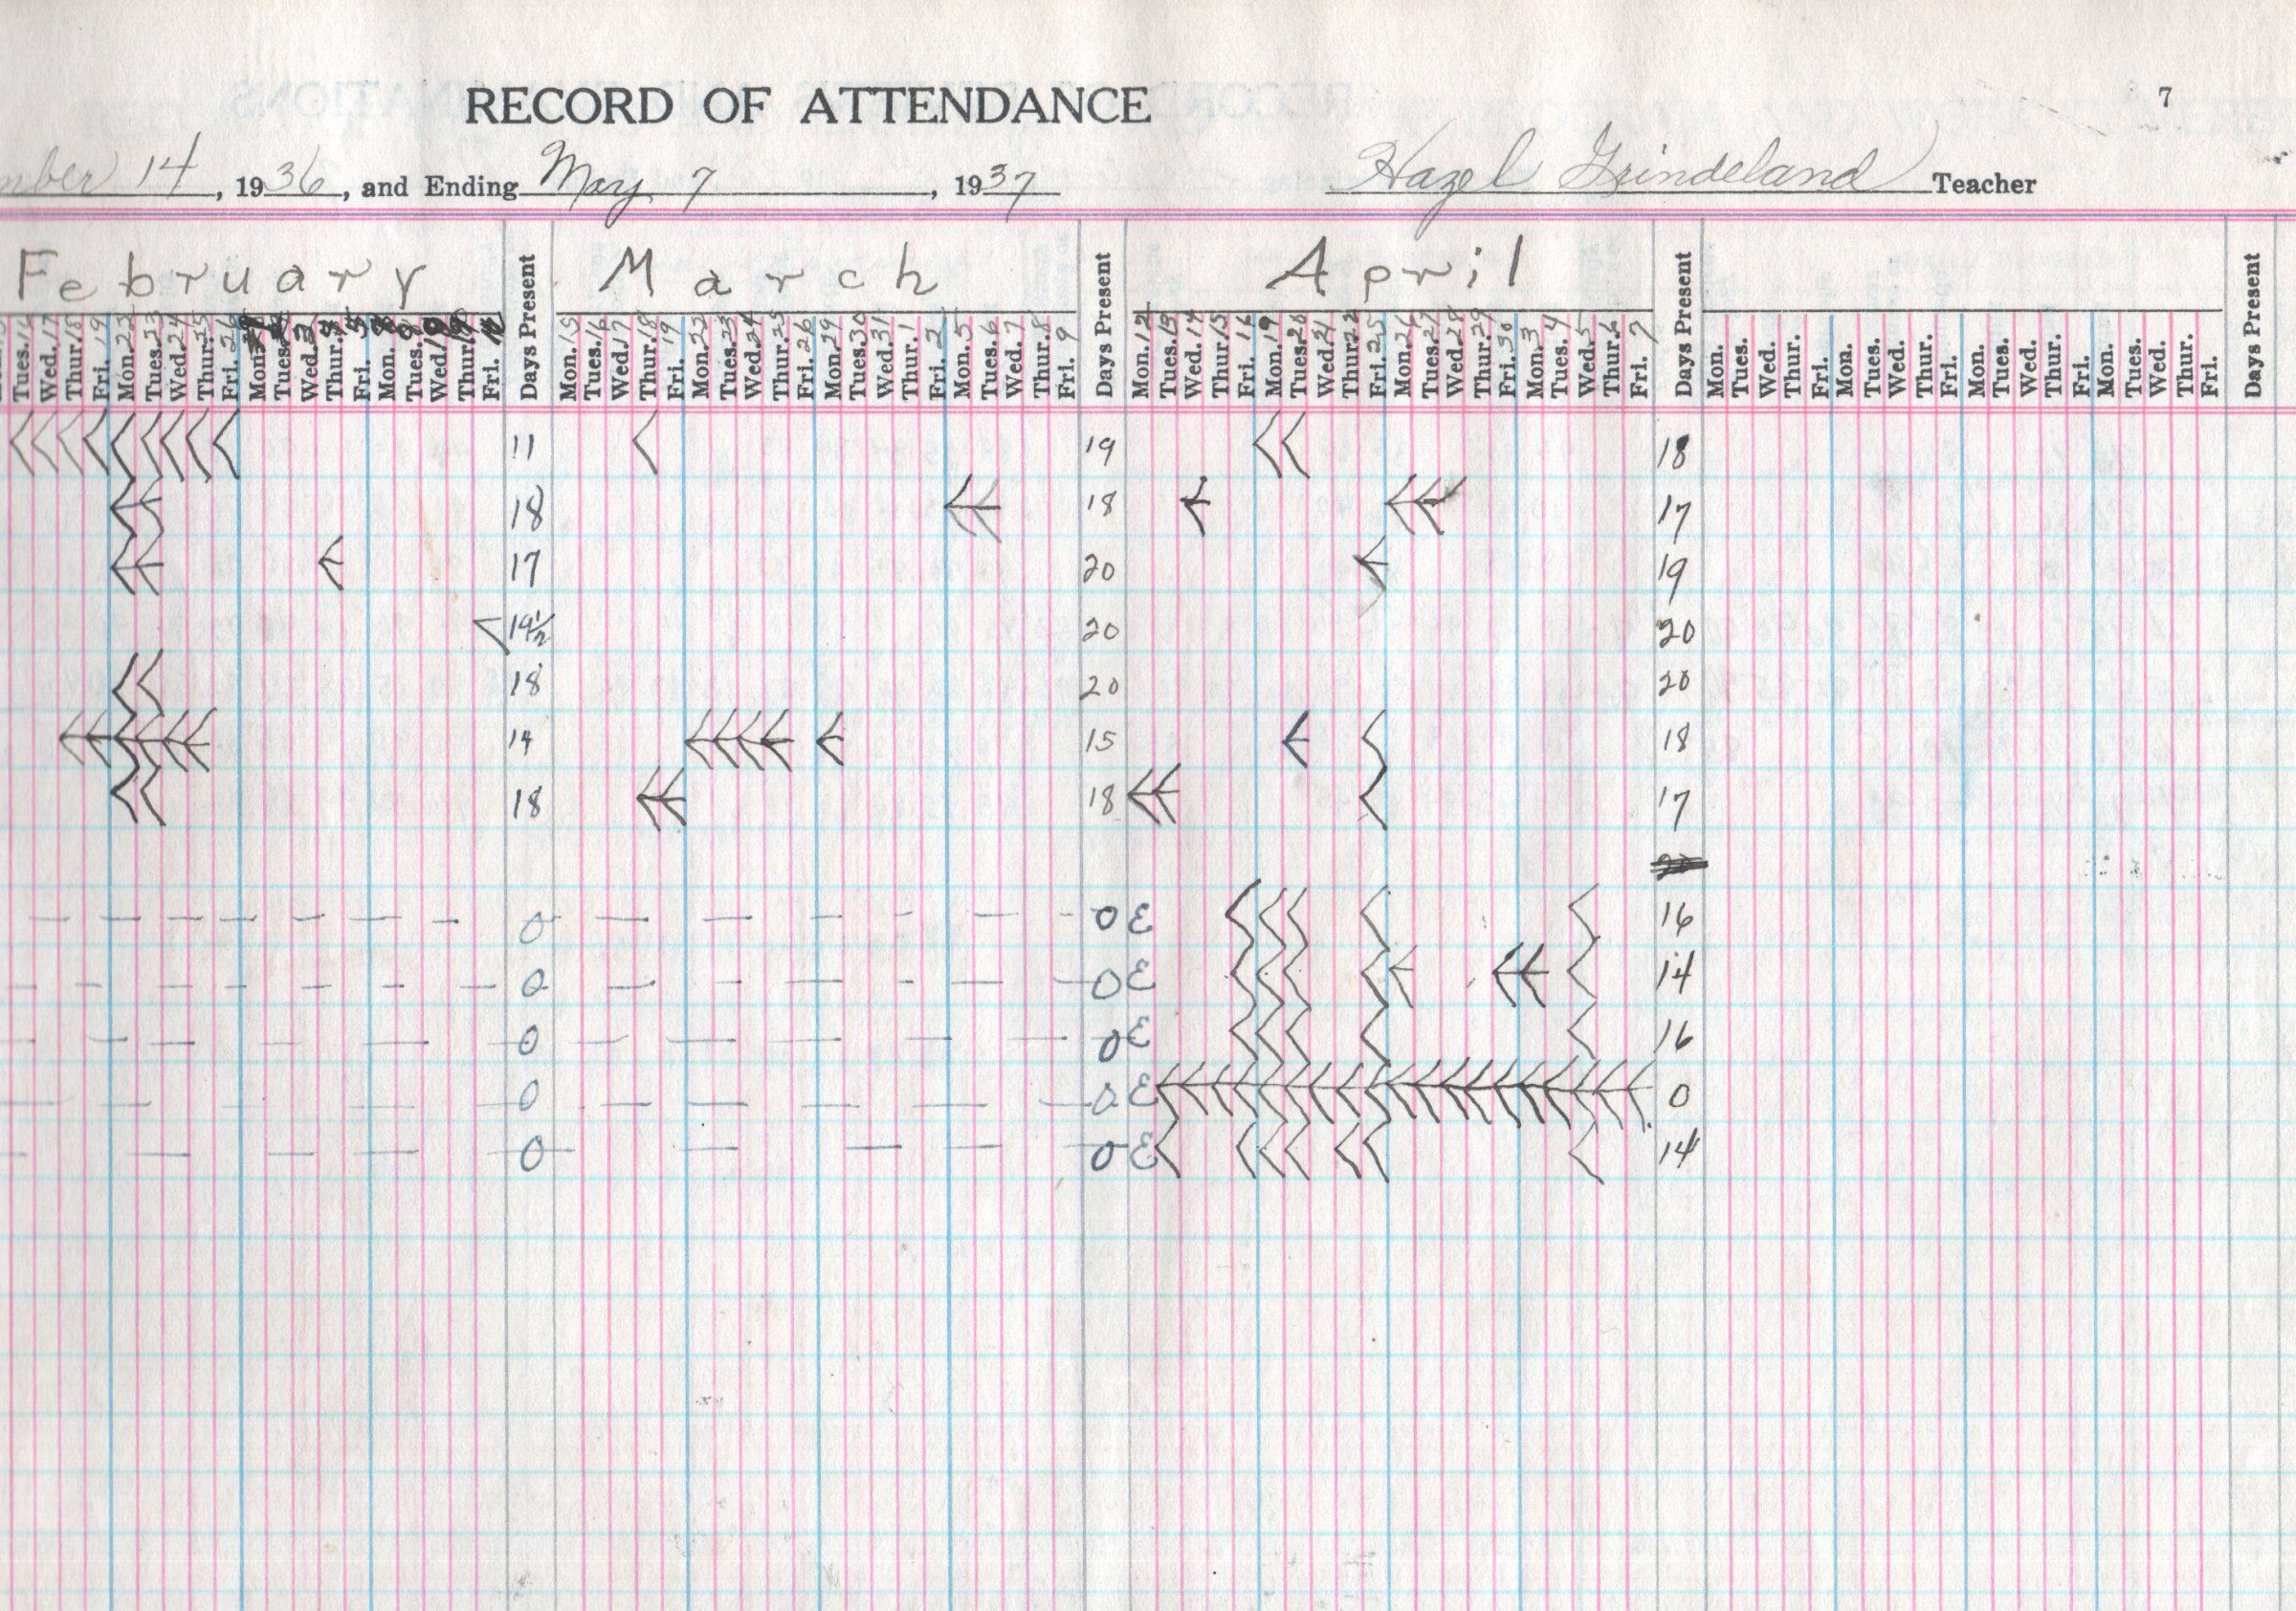 RECORD OF ATTENDANCE
7
mber 14, 1936, and Ending May 7, 1937 Hazel Grindeland Teacher
February Days Present March Days Present April Days Present Days Present
Tues. 16 Wed. 17 Thur. 18 Fri. 19 Mon. 22 Tues. 23 Wed. 24 Thur. 25 Fri. 26 Mon. Tues. Wed. 3 Thur. Fri. Mon. Tues. Wed. Thur. Fri. Mon. 15 Tues. 16 Wed. 17 Thur. 18 Fri. 19 Mon. 22 Tues. 23 Wed. 24 Thur. 25 Fri. 26 Mon. 29 Tues. 30 Wed. 31 Thur. 1 Fri. 2 Mon. 5 Tues. 6 Wed. 7 Thur. 8 Fri. 9 Mon. 12 Tues. 13 Wed. 14 Thur. 15 Fri. 16 Mon. 19 Tues. 20 Wed. 21 Thur. 22 Fri. 25 Mon. 26 Tues. 27 Wed. 28 Thur. 29 Fri. 30 Mon. 3 Tues. 4 Wed. 5 Thur. 6 Fri. 7 Mon. Tues. Wed. Thur. Fri. Mon. Tues. Wed. Thur. Fri. Mon. Tues. Wed. Thur. Fri. Mon. Tues. Wed. Thur. Fri.
11 19 18
18 18 17
17 20 19
19 1/2 20 20
18 20 20
14 15 18
18 18 17
0 0 E 16
0 0 E 14
0 0 E 16
0 0 E 0
0 0 E 14